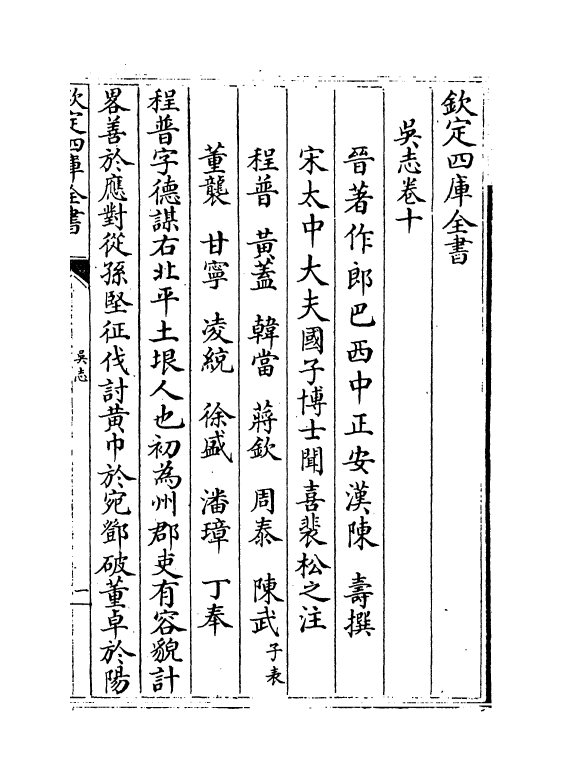 欽定四庫全書
吳志卷十
晉著作郎巴西中正安漢陳 壽撰
宋太中大夫國子博士聞喜裴松之注
程普 黃蓋 韓當 蔣欽 周泰 陳武子表
董襲 甘寧 凌統 徐盛 潘璋 丁奉
程普字德謀右北平土垠人也初為州郡吏有容貌計
畧善於應對從孫堅征伐討黃巾於宛鄧破董卓於陽
欽定四庫全書
吳志
一